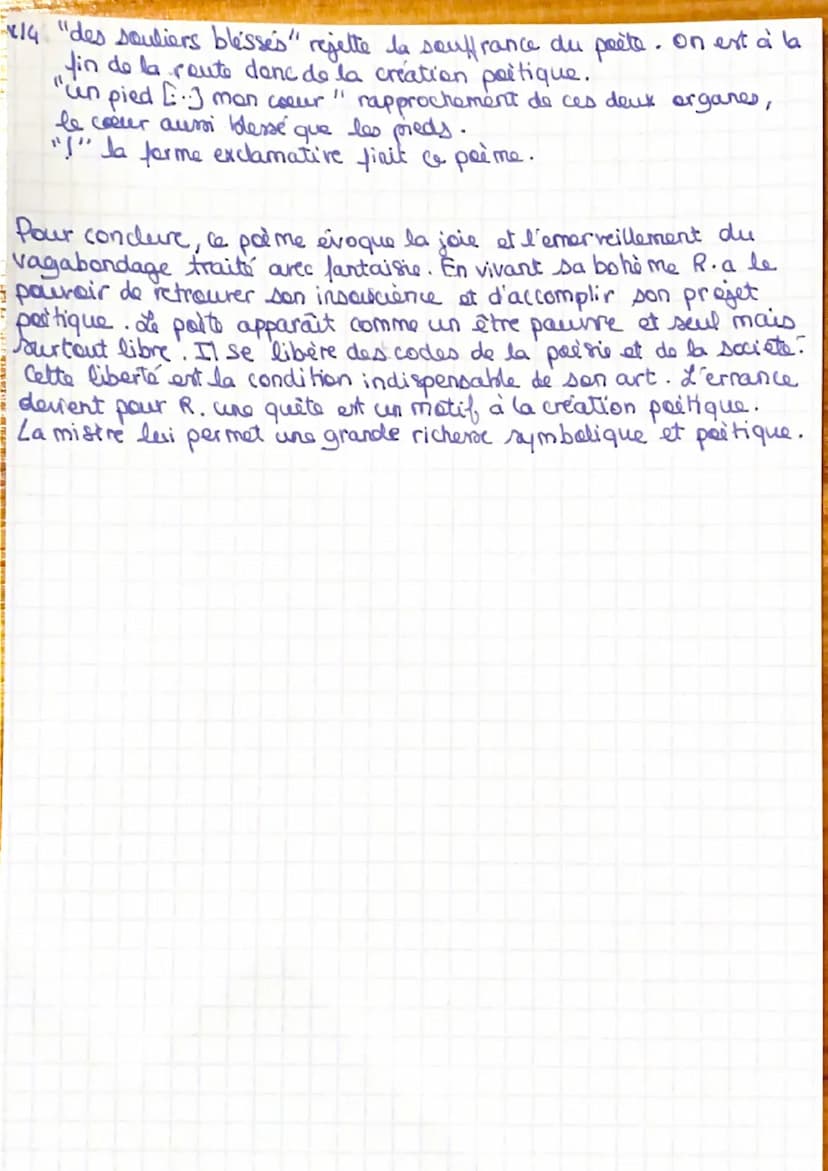 v14 "des souliers bléssés" rejette la souffrance du poète. On est à la
fin de la route donc de la création poètique.
"un pied [...] mon coeur" rapprochement de ces deux organes,
le coeur aussi blessé que les pieds.
"!" la forme exclamative finit ce poème.
Pour conclure, ce poème évoque la joie et l'émerveillement du
vagabondage traité avec fantaisie. En vivant sa bohème R. a le
pouvoir de retrouver son insouscience et d'accomplir son projet
poètique. Le poète apparaît comme un être pauvre et seul mais
surtout libre. Il se libère des codes de la poèsie et de la société.
Cette liberté est la condition indispensable de son art. L'errance
devient pour R. une quête est un motif à la création poètique.
La misère lui permet une grande richesse symbolique et poètique.